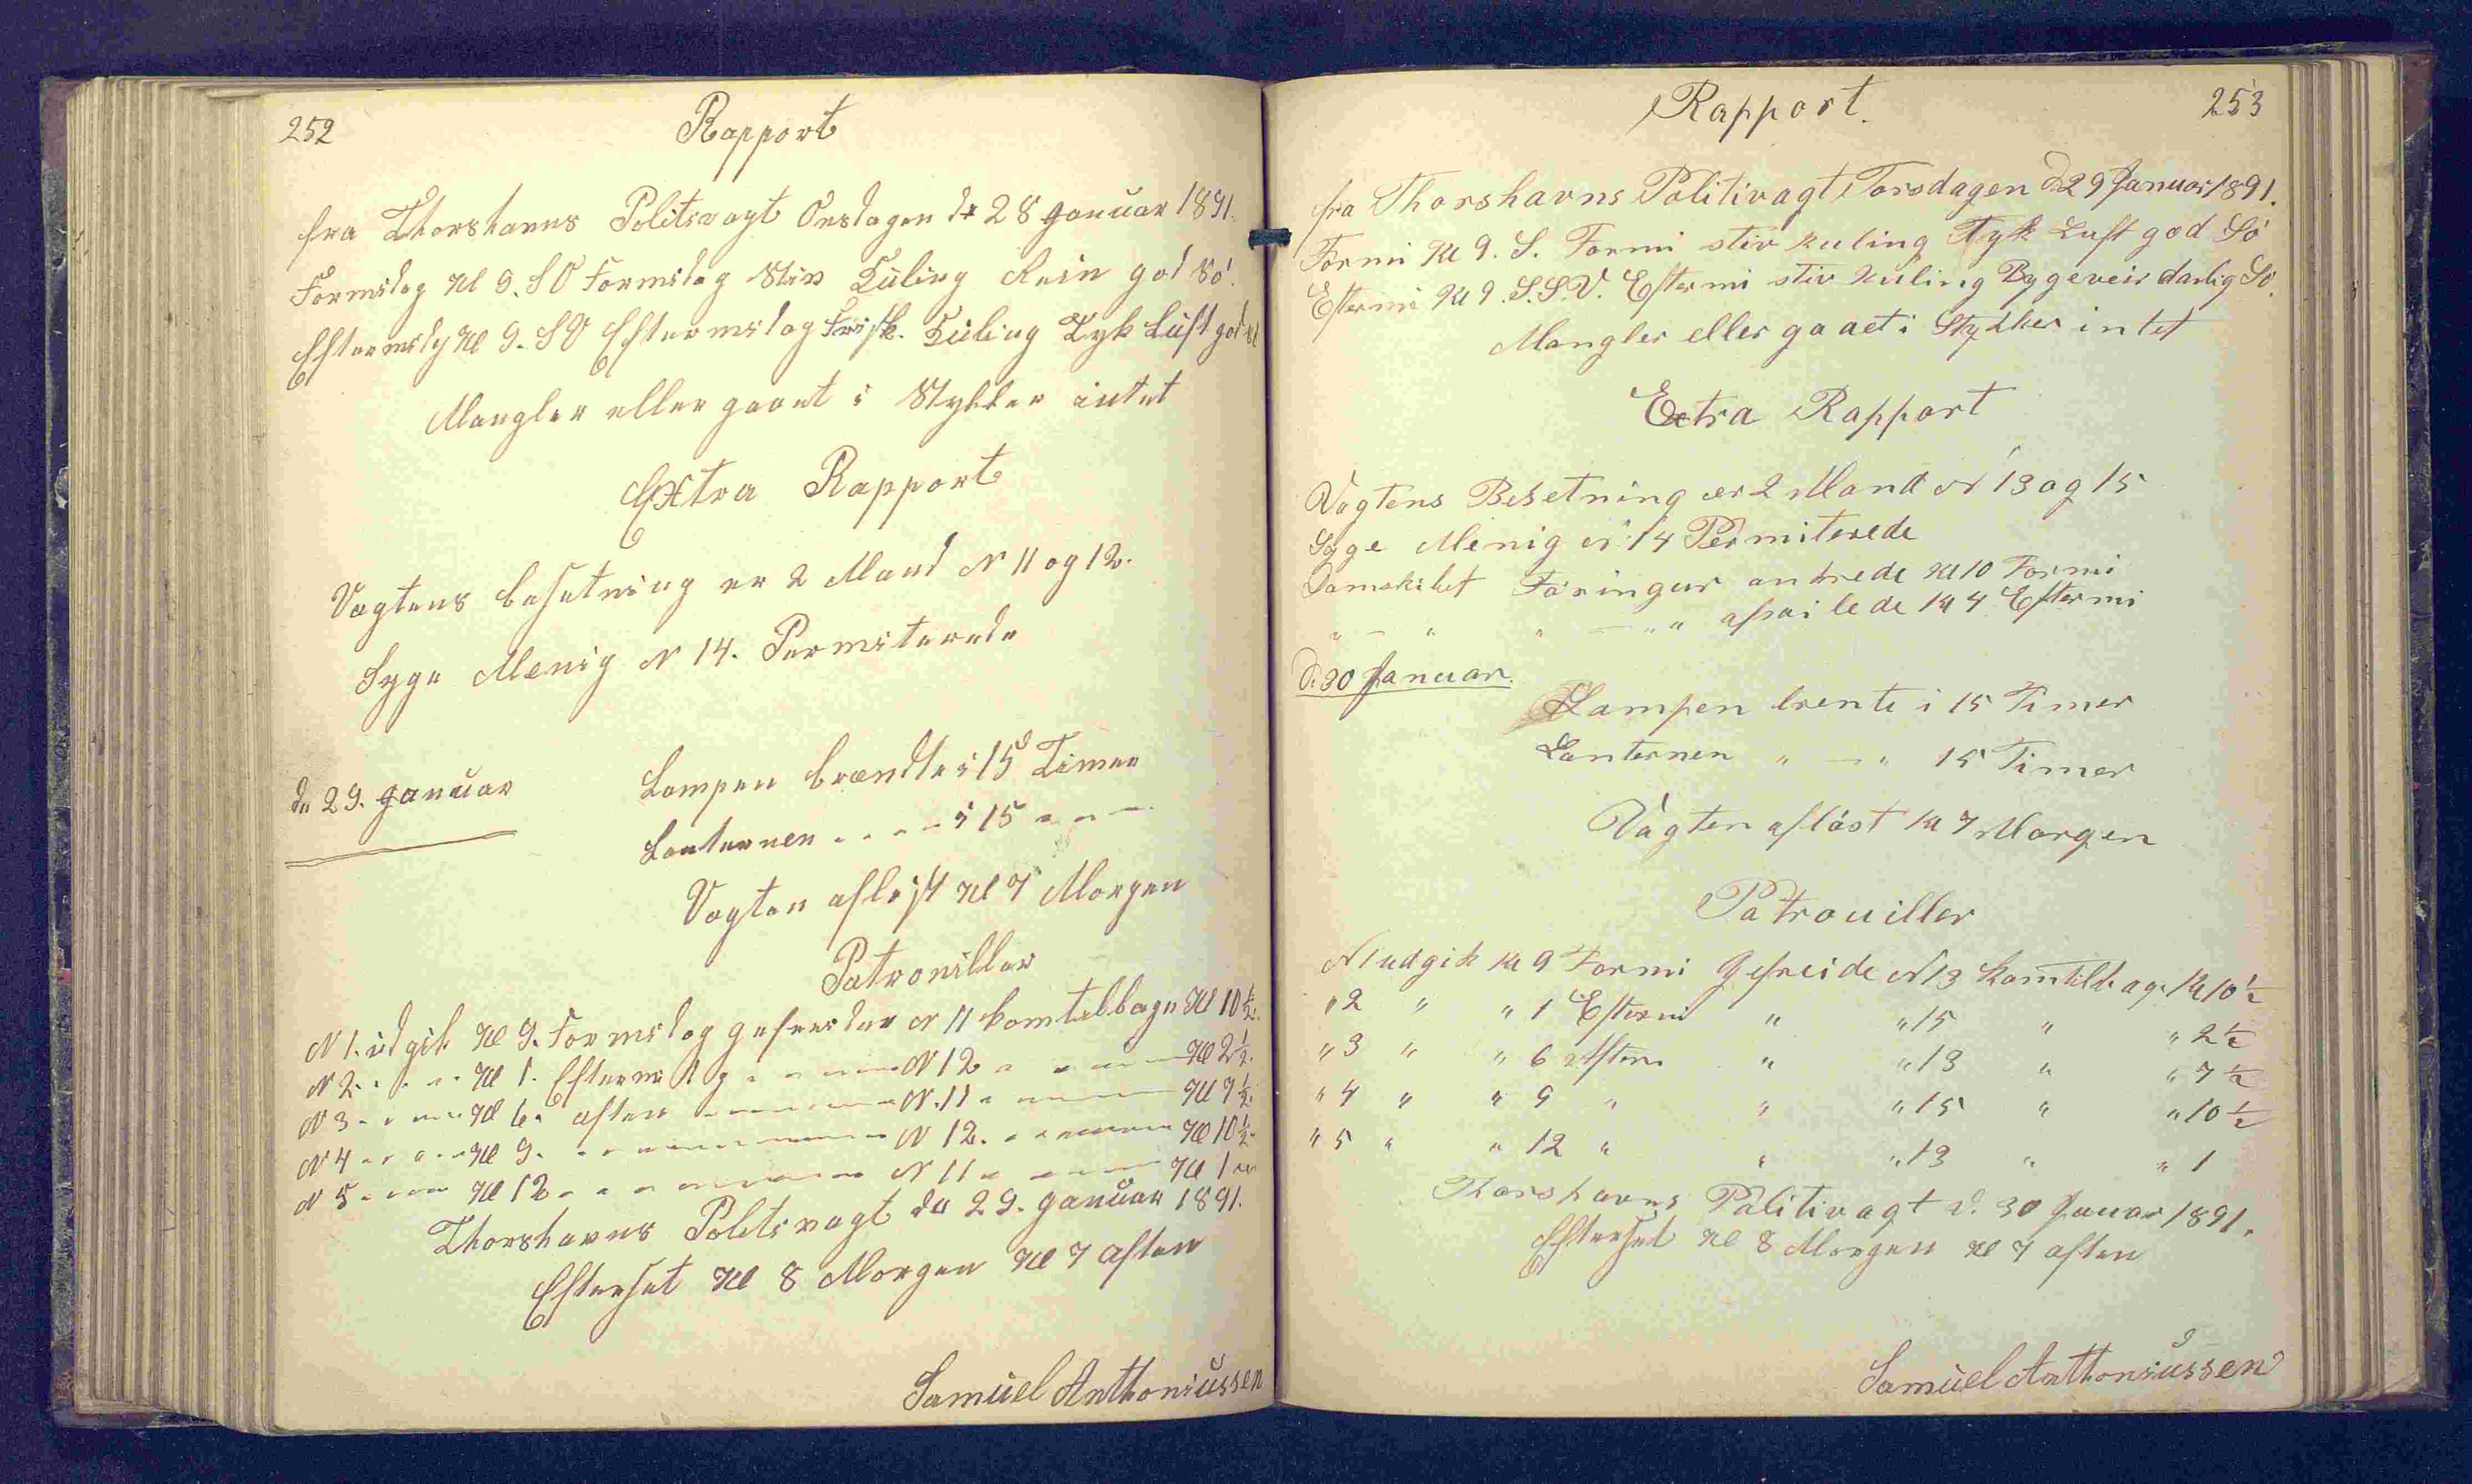 252
Rapport
fra Thorshavns Politivagt Onsdagen d: 28 Januar 1891.
Formidag Kl 9. SO Formidag Stiv Kuling Rein god Sö.
Eftermidg Kl 9. SO Eftermidag Frisk. Kuling Tyk Luft god Sö
Mangler eller gaaet i Stykker intet
Extra Rapport
Vagtens besetning er 2 Mand N 11 og 12.
Syge Menig N 14. Permiterede
de 29. Januar
Lampen brændte i 15 Timer
Lanternen " " " i 15 " " "
Vagten aflöst Kl 7 Morgen
Patrouiller
N 1. udgik Kl 9. Formidag gefreider N 11 kom tilbage Kl 10 1/2.
N 2 " " " Kl 1. Eftermidag " " " N 12 " " " Kl 2 1/2.
N 3 " " " Kl 6. aften " " " N. 11 " " " Kl 7 1/2.
N 4 " " " Kl 9. " " " N 12. " " " Kl 10 1/2.
N 5 " " " Kl 12 " " " N 11 " " " Kl 1 "
Thorshavns Politivagt de 29. Januar 1891.
Efterset Kl 8 Morgen Kl 7 aften
Samuel Anthoniussen
253
Rapport.
fra Thorshavns Politivagt Torsdagen d. 29 Januar 1891.
Formi Kl 9. S. Formi stiv kuling Tyk Luft god Sö
Eftermi Kl 9. S.S.V. Eftermi stiv Kuling Bygeveir darlig Sö.
Mangler eller gaaet i Stykker intet
Extra Rapport
Vagtens Besetning er 2 Mand N 13 og 15
Syge Menig N 14 Permiterede
Damskibet Föringur ankrede Kl 10 Formi
" — " " — " " afseilede Kl 4 Eftermi
d. 30 Januar.
Lampen brente i 15 Timer
Lanternen " — " 15 Timer
Vagten aflöst Kl 7 Morgen
Patrouiller
N 1 udgik Kl 9 Formi Gefreide N 13 kom tilbage Kl 10 1/2
" 2 " " 1 Eftermi " " 15 " " 2 1/2
" 3 " " 6 Aften " " 13 " " 7 1/2
" 4 " " 9 " " " 15 " " 10 1/2
" 5 " " 12 " " " 13 " " 1
Thorshavns Politivagt d. 30 Januar 1891.
Efterset Kl 8 Morgen Kl 7 aften
Samuel Anthoniussen